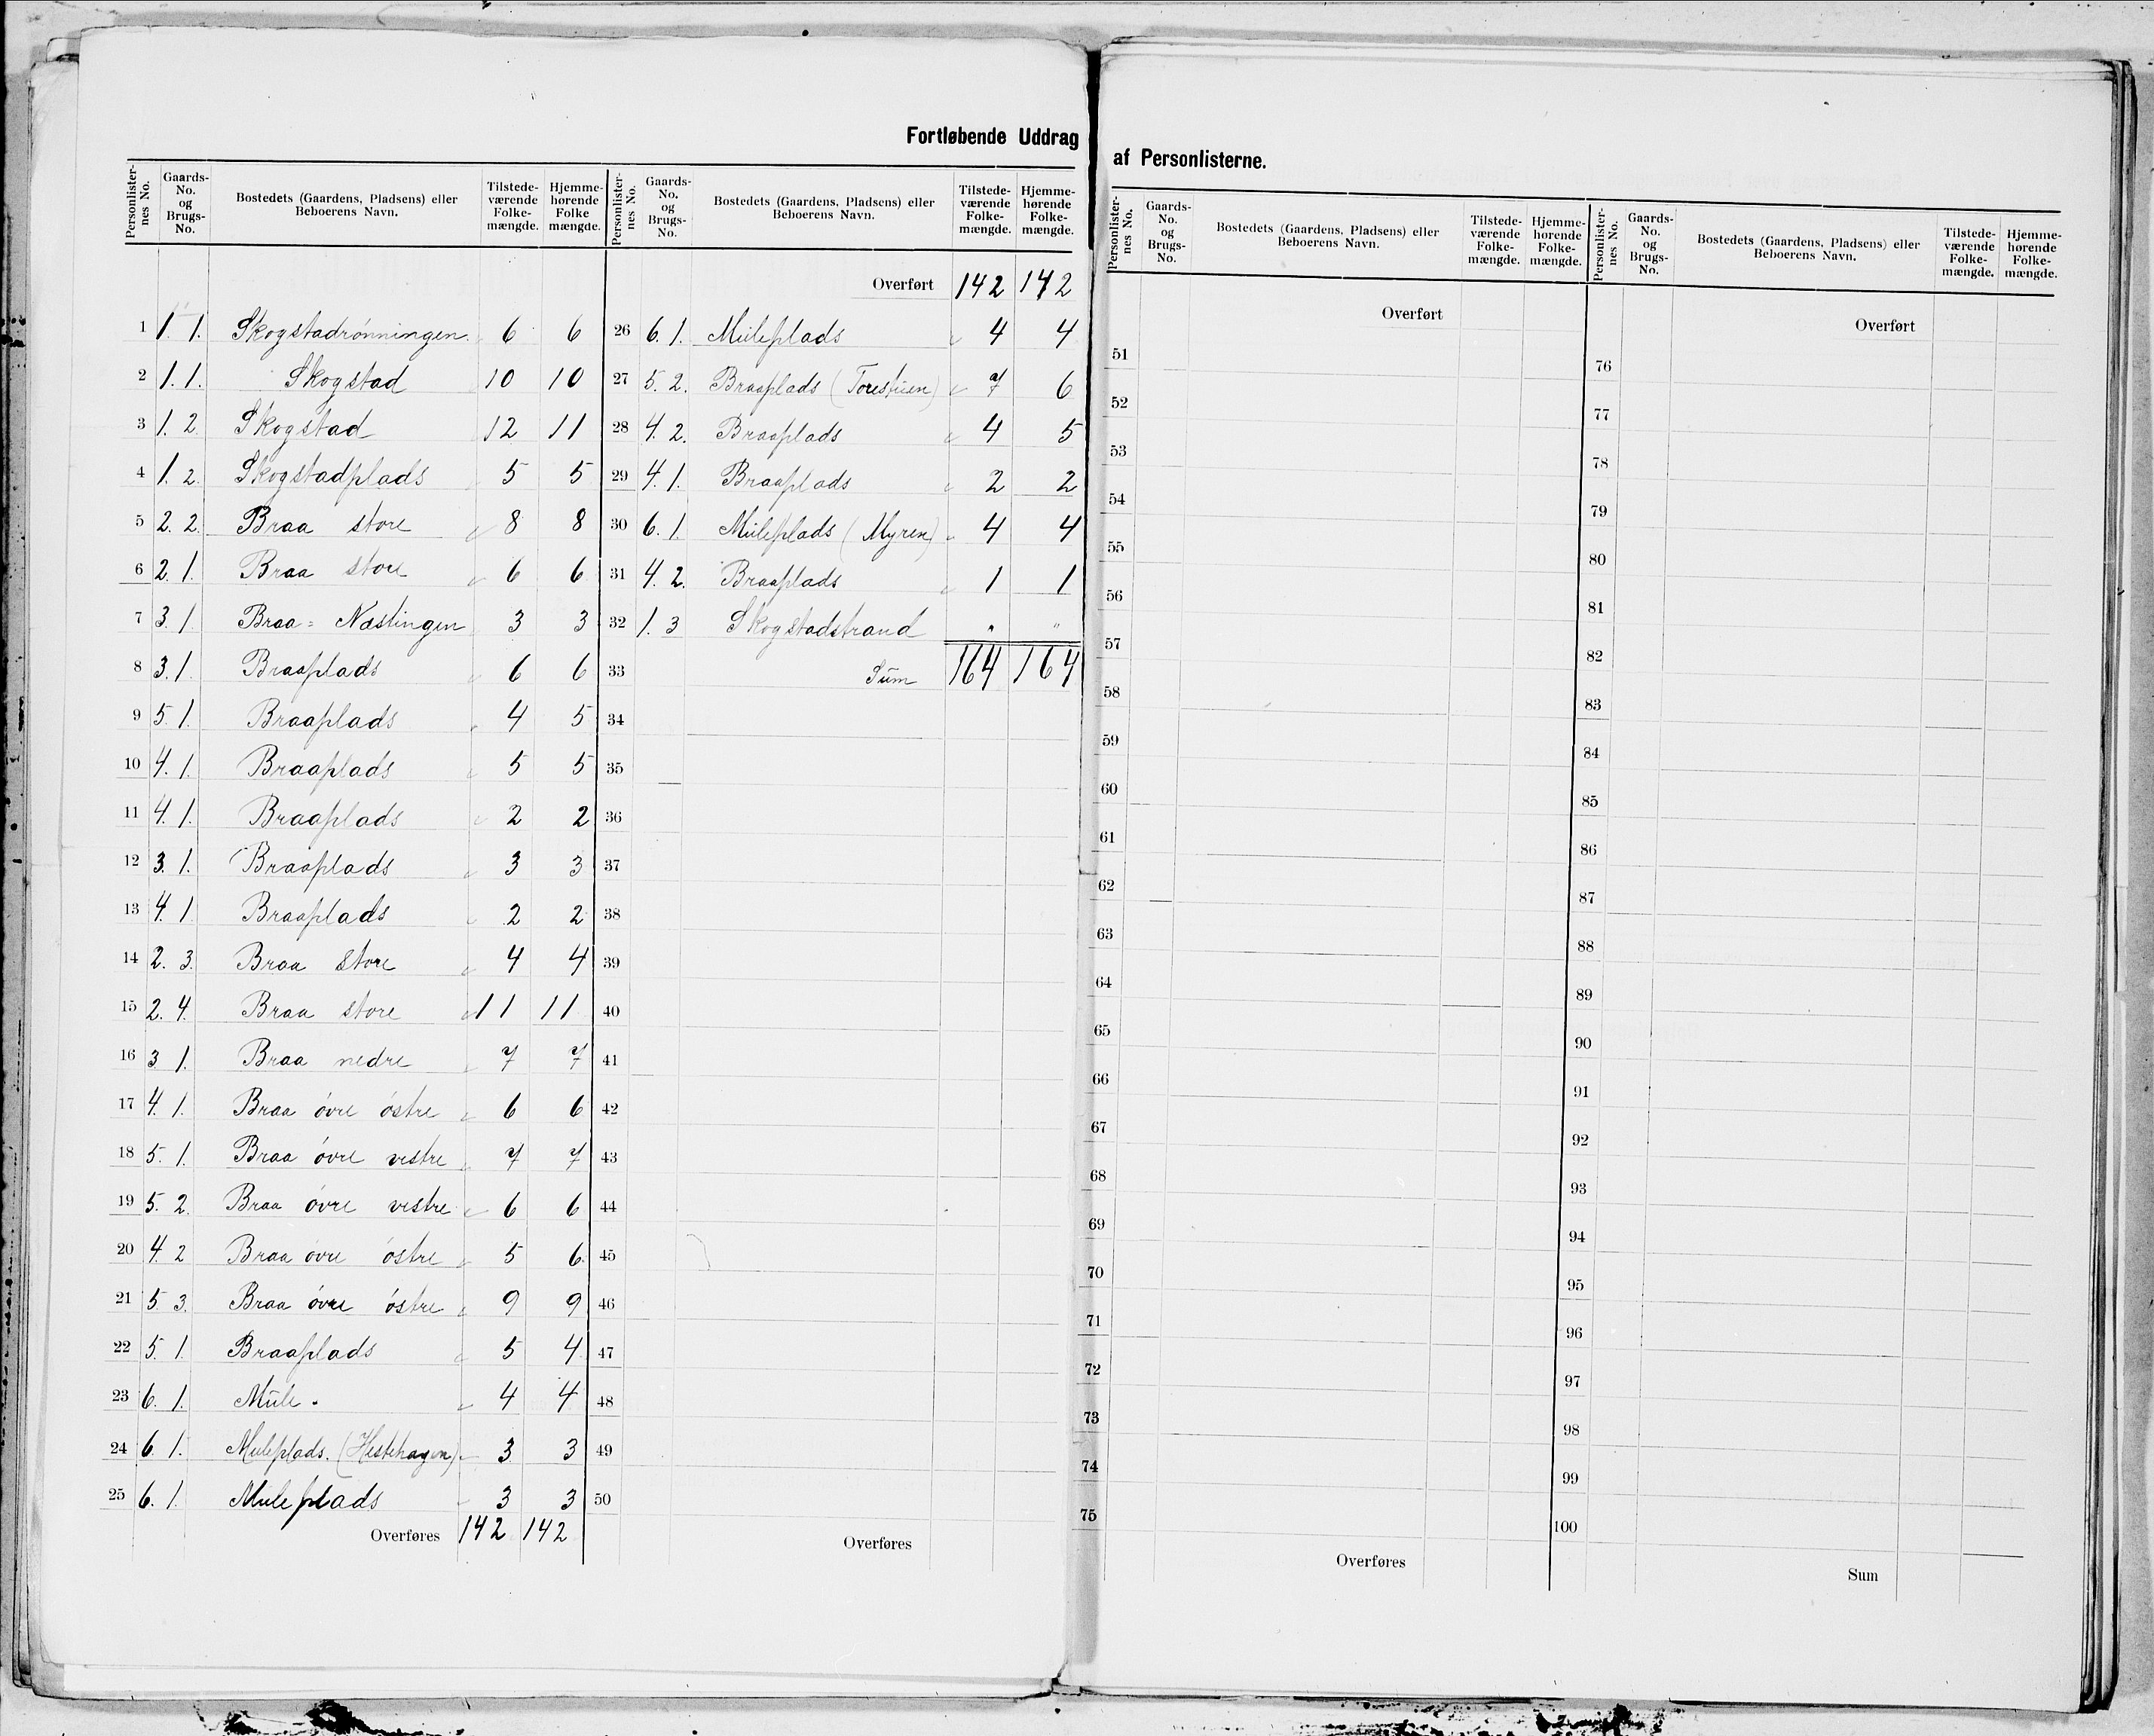 Fortløbende Uddrag af Personlisterne.
Personlisternes No. Gaards-No. og Brugs-No. Bostedets (Gaardens, Pladsens) eller Beboerens Navn. Tilstedeværende Folkemængde. Hjemmehørende Folkemængde.
1 1. 1. Skogstadrønningen 6 6
2 1. 1. Skogstad 10 10
3 1. 2. Skogstad 12 11
4 1. 2. Skogstadplads 5 5
5 2. 2. Braa store 8 8
6 2. 1. Braa store 6 6
7 3. 1. Braa = Næstingen 3 3
8 3. 1. Braaplads 6 6
9 5. 1. Braaplads 4 5
10 4. 1. Braaplads 5 5
11 4. 1. Braaplads 2 2
12 3. 1. Braaplads 3 3
13 4. 1 Braaplads 2 2
14 2. 3. Braa store 4 4
15 2. 4. Braa store 11 11
16 3 1. Braa nedre 7 7
17 4. 1. Braa övre östre 6 6
18 5. 1. Braa övre vestre 7 7
19 5. 2. Braa övre vestre 6 6
20 4. 2 Braa övre östre 5 6
21 5 3. Braa övre östre 9 9
22 5. 1. Braaplads 5 4
23 6. 1. Mule. 4 4
24 6 1. Muleplads. (Hestehagen) 3 3
25 6. 1. Muleplads 3 3
Overføres 142 142
Personlisternes No. Gaards-No. og Brugs-No. Bostedets (Gaardens, Pladsens) eller Beboerens Navn. Tilstedeværende Folkemængde. Hjemmehørende Folkemængde.
Overført 142 142
26 6. 1. Muleplads 4 4
27 5. 2. Braaplads (Torestuen) 7 6
28 4. 2. Braaplads 4 5
29 4. 1. Braaplads 2 2
30 6. 1. Muleplads (Myren) 4 4
31 4. 2. Braaplads 1 1
32 1. 3 Skogstadstrand " "
33 Sum 164 164
34
35
36
37
38
39
40
41
42
43
44
45
46
47
48
49
50
Overføres
Personlisternes No. Gaards-No. og Brugs-No. Bostedets (Gaardens, Pladsens) eller Beboerens Navn. Tilstedeværende Folkemængde. Hjemmehørende Folkemængde.
Overført
51
52
53
54
55
56
57
58
59
60
61
62
63
64
65
66
67
68
69
70
71
72
73
74
75
Overføres
Personlisternes No. Gaards-No. og Brugs-No. Bostedets (Gaardens, Pladsens) eller Beboerens Navn. Tilstedeværende Folkemængde. Hjemmehørende Folkemængde.
Overført
76
77
78
79
80
81
82
83
84
85
86
87
88
89
90
91
92
93
94
95
96
97
98
99
100
Sum